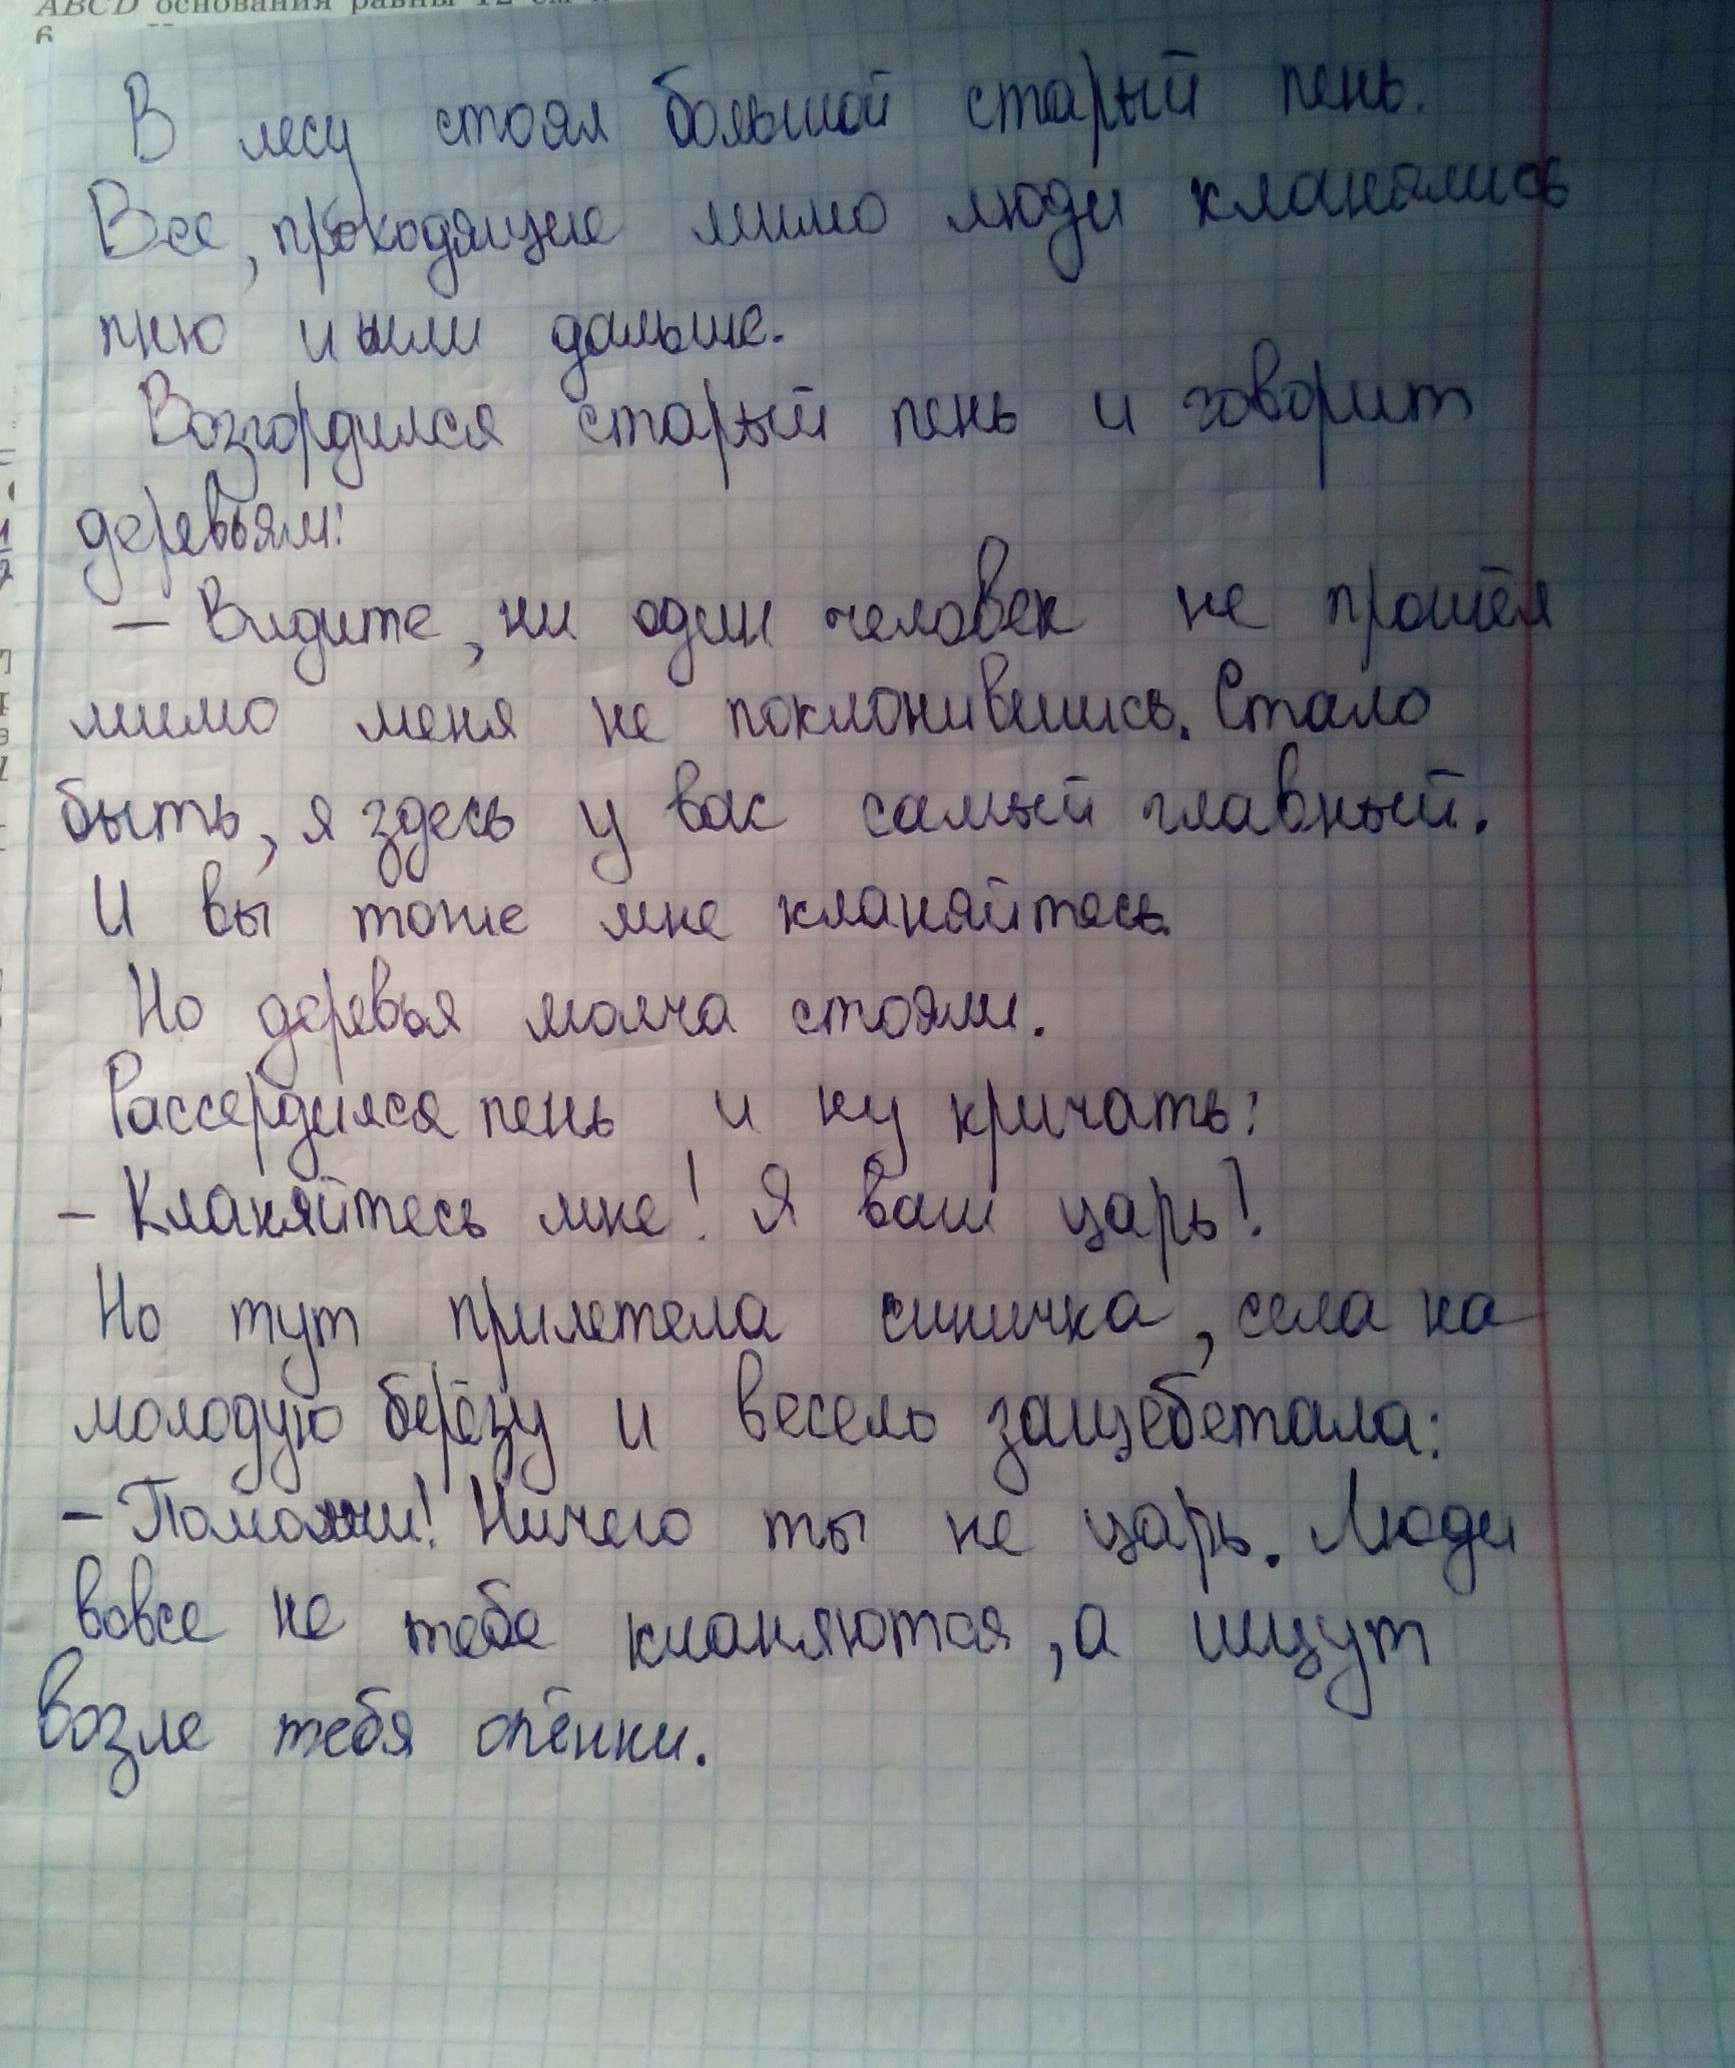 ABCD основания равны 12 см
6
В лесу стоял большой старый пень.
Все, проходящие мимо люди кланялись
пню и шли дальше.
Возгордился старый пень и говорит
деревьям:
— Видите, ни один человек не прошёл
мимо меня не поклонившись. Стало
быть, я здесь у вас самый главный.
И вы тоже мне кланяйтесь.
Но деревья молча стояли.
Рассердился пень и ну кричать:
- Кланяйтесь мне! Я ваш царь!
Но тут прилетела синичка, села на
молодую берёзу и весело защебетала:
- Помолчи! Ничего ты не царь. Люди
вовсе не тебе кланяются, а ищут
возле тебя опёнки.